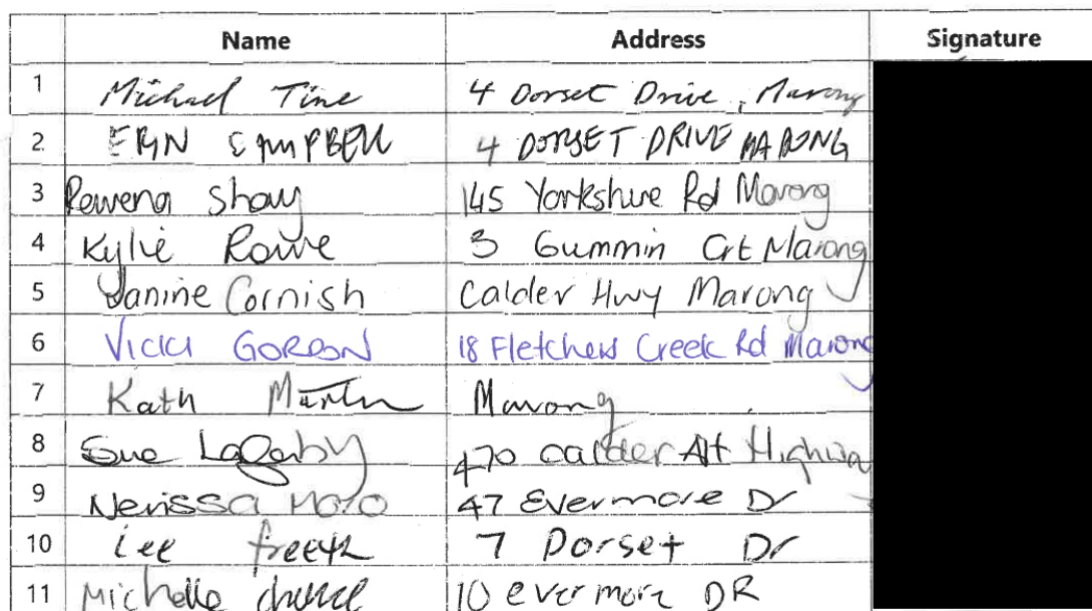 Name Address Signature
1 Michael Tine 4 Dorset Drive, Marong
2 ERIN CAMPBELL 4 DORSET DRIVE MARONG
3 Rewena Shay 145 Yorkshire Rd Marong
4 Kylie Rowe 3 Gummin Crt Marong
5 Janine Cornish Calder Hwy Marong
6 Vicki GORDON 18 Fletchers Creek Rd Marong
7 Kath Martin Marong
8 Sue 470 Calder Alt Highway
9 Nerissa 47 Evermore Dr
10 Lee freeth 7 Dorset Dr
11 Michelle 10 evermore DR